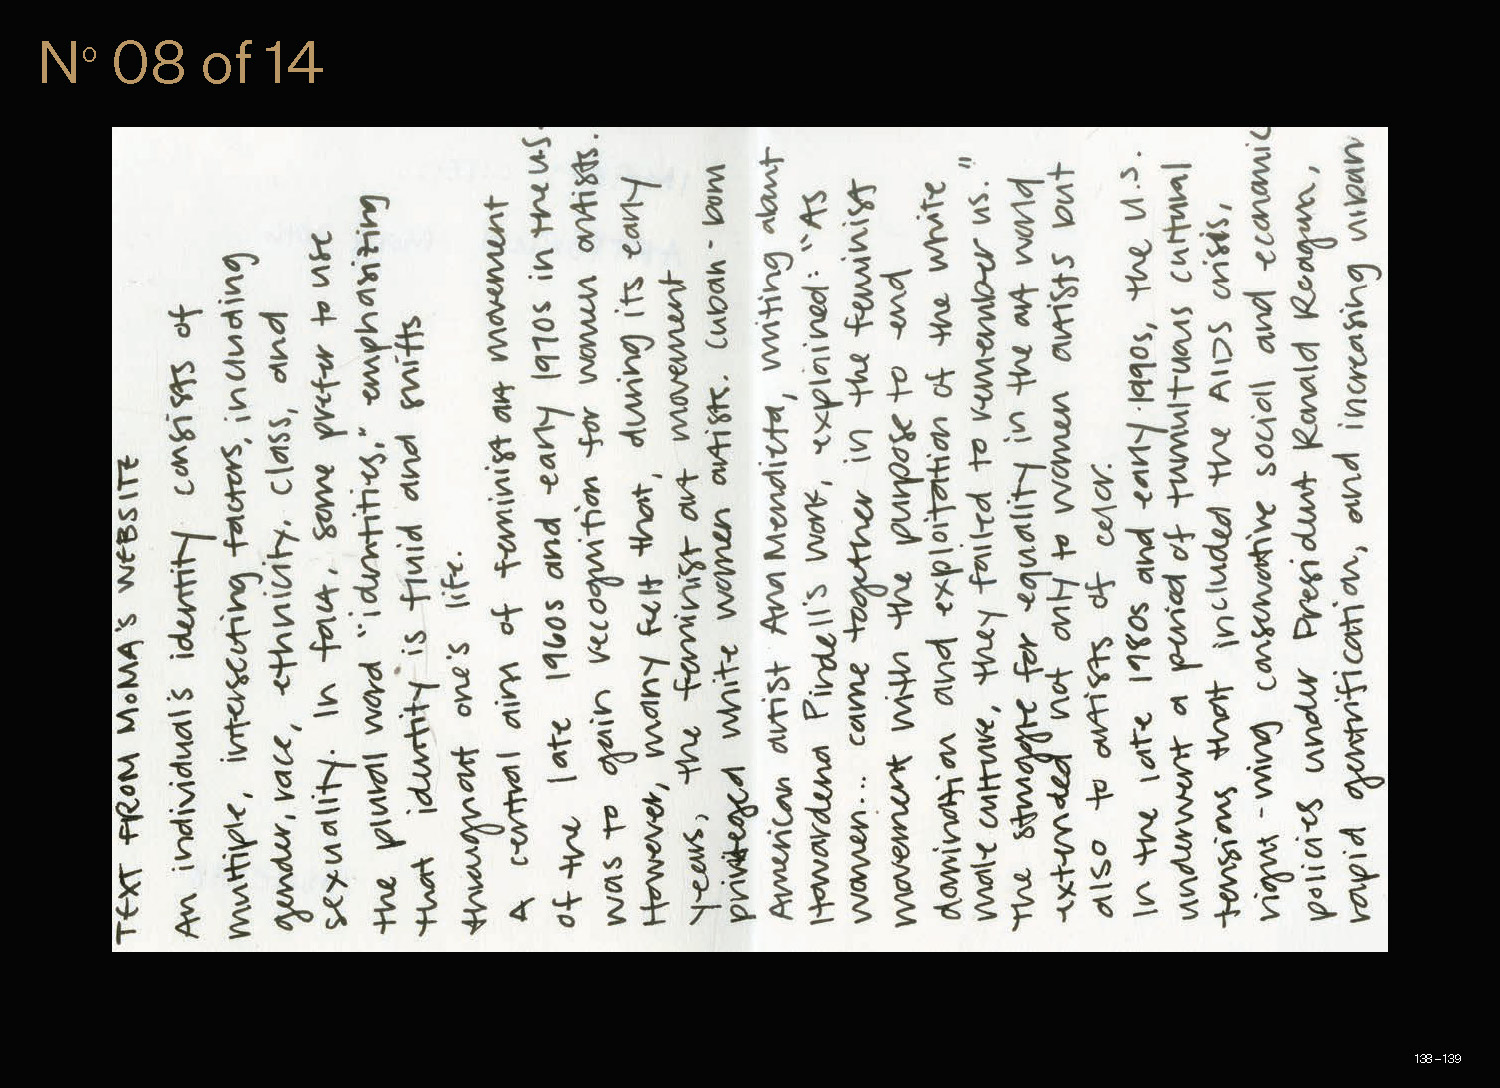 Nº 08 of 14
TEXT FROM MoMA'S WEBSITE
An individual's identity consists of
multiple, intersecting factors, including
gender, race, ethnicity, class, and
sexuality. In fact, some prefer to use
the plural word "identities," emphasizing
that identity is fluid and shifts
throughout one's life.
A central aim of feminist art movement
of the late 1960s and early 1970s in the US.
was to gain recognition for women artists.
However, many felt that, during its early
years, the feminist art movement
privileged white women artists. Cuban-born
American artist Ana Mendieta, writing about
Howardena Pindell's work, explained: "As
women... came together in the feminist
movement with the purpose to end
domination and exploitation of the white
male culture, they failed to remember us."
The struggle for equality in the art world
extended not only to women artists but
also to artists of color.
In the late 1980s and early 1990s, the U.S.
underwent a period of tumultuous cultural
tensions that included the AIDS crisis,
right-wing conservative social and economic
policies under President Ronald Reagan,
rapid gentrification, and increasing urban
138–139